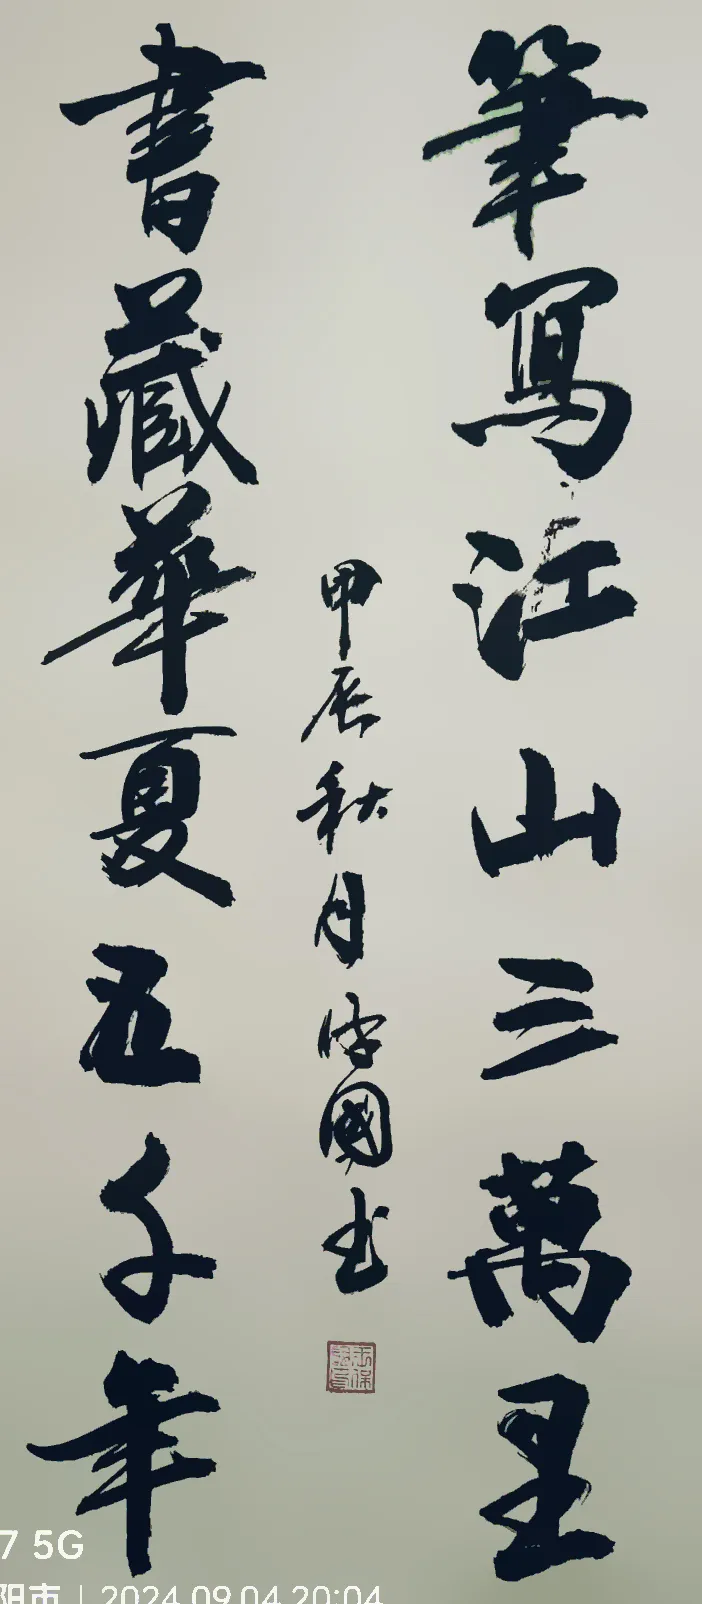 筆寫江山三萬里
甲辰秋月保國书
書藏華夏五千年
7 5G
阳市 | 2024.09.04 20:04